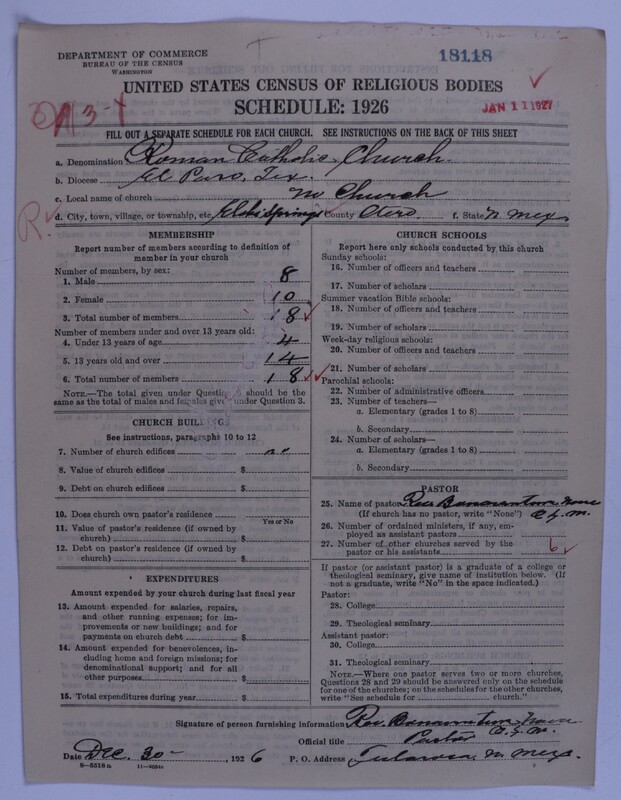 DEPARTMENT OF COMMERCE
BUREAU OF THE CENSUS
WASHINGTON
18118
UNITED STATES CENSUS OF RELIGIOUS BODIES
SCHEDULE: 1926
JAN 11 1927
FILL OUT A SEPARATE SCHEDULE FOR EACH CHURCH. SEE INSTRUCTIONS ON THE BACK OF THIS SHEET
a. Denomination Roman Catholic Church
b. Diocese El Paso, Tex.
c. Local name of church no Church
d. City, town, village, or township, etc. Springs County Otero f. State N. Mex
MEMBERSHIP
Report number of members according to definition of
member in your church
Number of members, by sex:
1. Male 8
2. Female 10
3. Total number of members 18
Number of members under and over 13 years old:
4. Under 13 years of age 4
5. 13 years old and over 14
6. Total number of members 18
NOTE.—The total given under Question 6 should be the
same as the total of males and females given under Question 3.
CHURCH BUILDINGS
See instructions, paragraphs 10 to 12
7. Number of church edifices no
8. Value of church edifices $
9. Debt on church edifices $
10. Does church own pastor's residence
Yes or No
11. Value of pastor's residence (if owned by
church) $
12. Debt on pastor's residence (if owned by
church) $
EXPENDITURES
Amount expended by your church during last fiscal year
13. Amount expended for salaries, repairs,
and other running expenses; for im-
provements or new buildings; and for
payments on church debt $
14. Amount expended for benevolences, in-
cluding home and foreign missions; for
denominational support; and for all
other purposes $
15. Total expenditures during year $
CHURCH SCHOOLS
Report here only schools conducted by this church
Sunday schools:
16. Number of officers and teachers
17. Number of scholars
Summer vacation Bible schools:
18. Number of officers and teachers
19. Number of scholars
Week-day religious schools:
20. Number of officers and teachers
21. Number of scholars
Parochial schools:
22. Number of administrative officers
23. Number of teachers—
a. Elementary (grades 1 to 8)
b. Secondary
24. Number of scholars—
a. Elementary (grades 1 to 8)
b. Secondary
PASTOR
25. Name of pastor Rev. Bonaventure
(If church has no pastor, write "None") O.F.M.
26. Number of ordained ministers, if any, em-
ployed as assistant pastors
27. Number of other churches served by the
pastor or his assistants 6
If pastor (or assistant pastor) is a graduate of a college or
theological seminary, give name of institution below. (If
not a graduate, write "No" in the space indicated.)
Pastor:
28. College
29. Theological seminary
Assistant pastor:
30. College
31. Theological seminary
NOTE.—Where one pastor serves two or more churches,
Questions 28 and 29 should be answered only on the schedule
for one of the churches; on the schedules for the other churches,
write "See schedule for church."
Signature of person furnishing information Rev. Bonaventure
Official title Pastor O.F.M.
Date Dec. 30-, 1926 P. O. Address Tularosa, N. Mex.